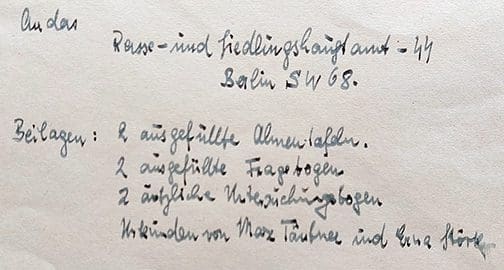 An das
Rasse- und Siedlungshauptamt - SS
Berlin SW 68.
Beilagen: 2 ausgefüllte Ahnentafeln.
2 ausgefüllte Fragebogen
2 ärztliche Untersuchungsbogen
Urkunden von Max Täubner und Erna Störk